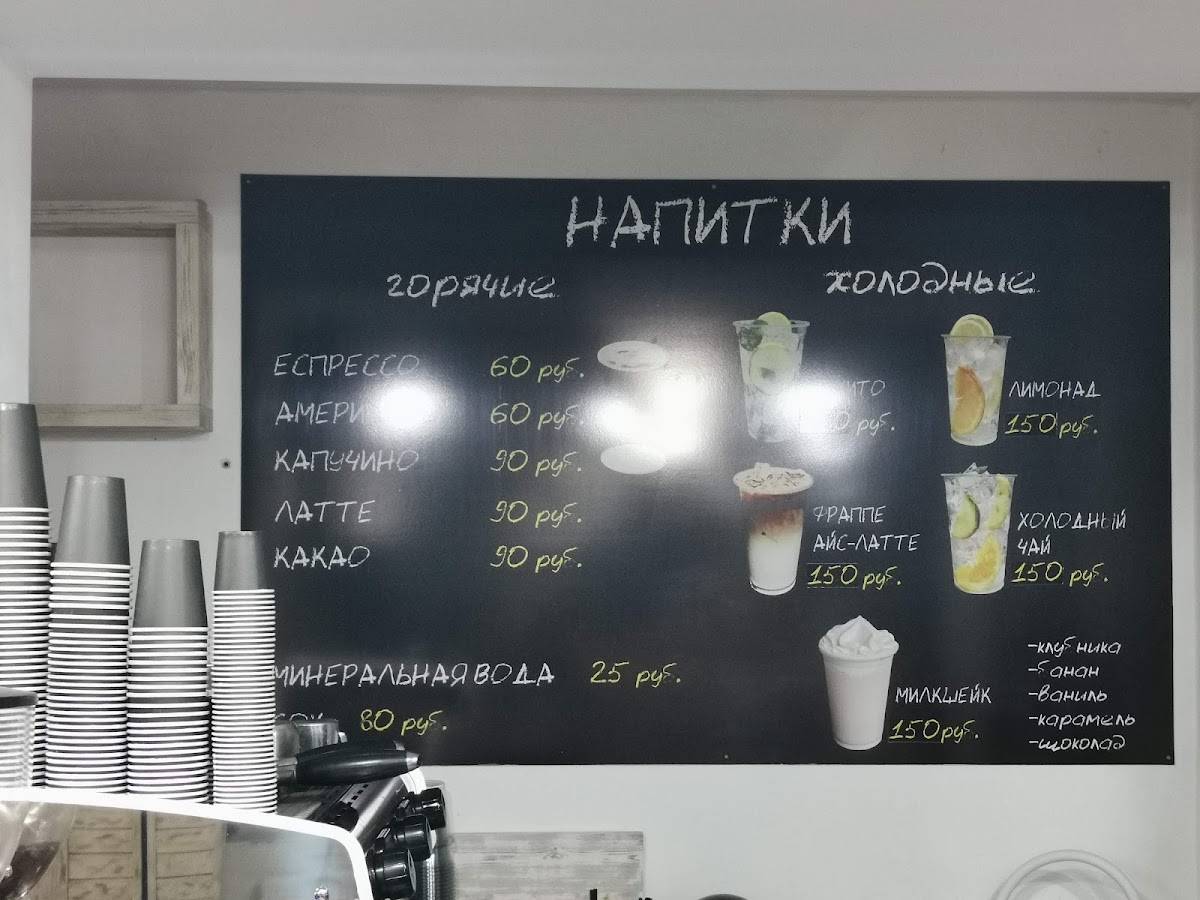 НАПИТКИ
горячие
ЕСПРЕССО 60 руб.
60 руб.
КАПУЧИНО 90 руб.
ЛАТТЕ 90 руб.
КАКАО 90 руб.
МИНЕРАЛЬНАЯ ВОДА 25 руб.
80 руб.
холодные
руб.
ЛИМОНАД
150 руб.
ФРАППЕ
АЙС-ЛАТТЕ
150 руб.
ХОЛОДНЫЙ
ЧАЙ
150 руб.
МИЛКШЕЙК
150 руб.
-клубника
-банан
-ваниль
-карамель
-шоколад